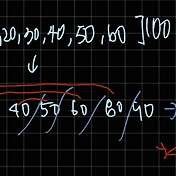 20,30,40,50,60 ]100
↓
40/50/60/80/90 →